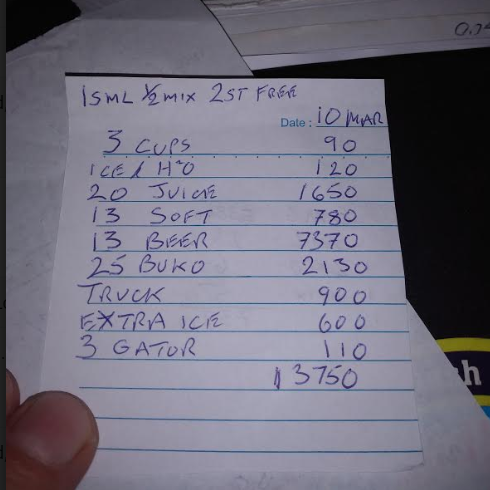 1 SML 1/2 MIX 2ST FREE
Date: 10 MAR
3 CUPS 90
ICE / H2O 120
20 JUICE 1650
13 SOFT 780
13 BEER 7370
25 BUKO 2130
TRUCK 900
EXTRA ICE 600
3 GATOR 110
13750